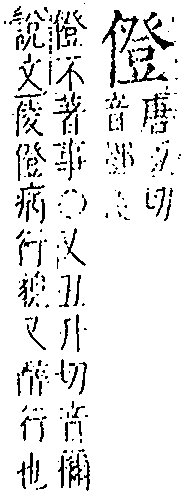 僜
唐亙切
音鄧
僜不著事○又丑升切音
說文倰僜病行貌又醉行也